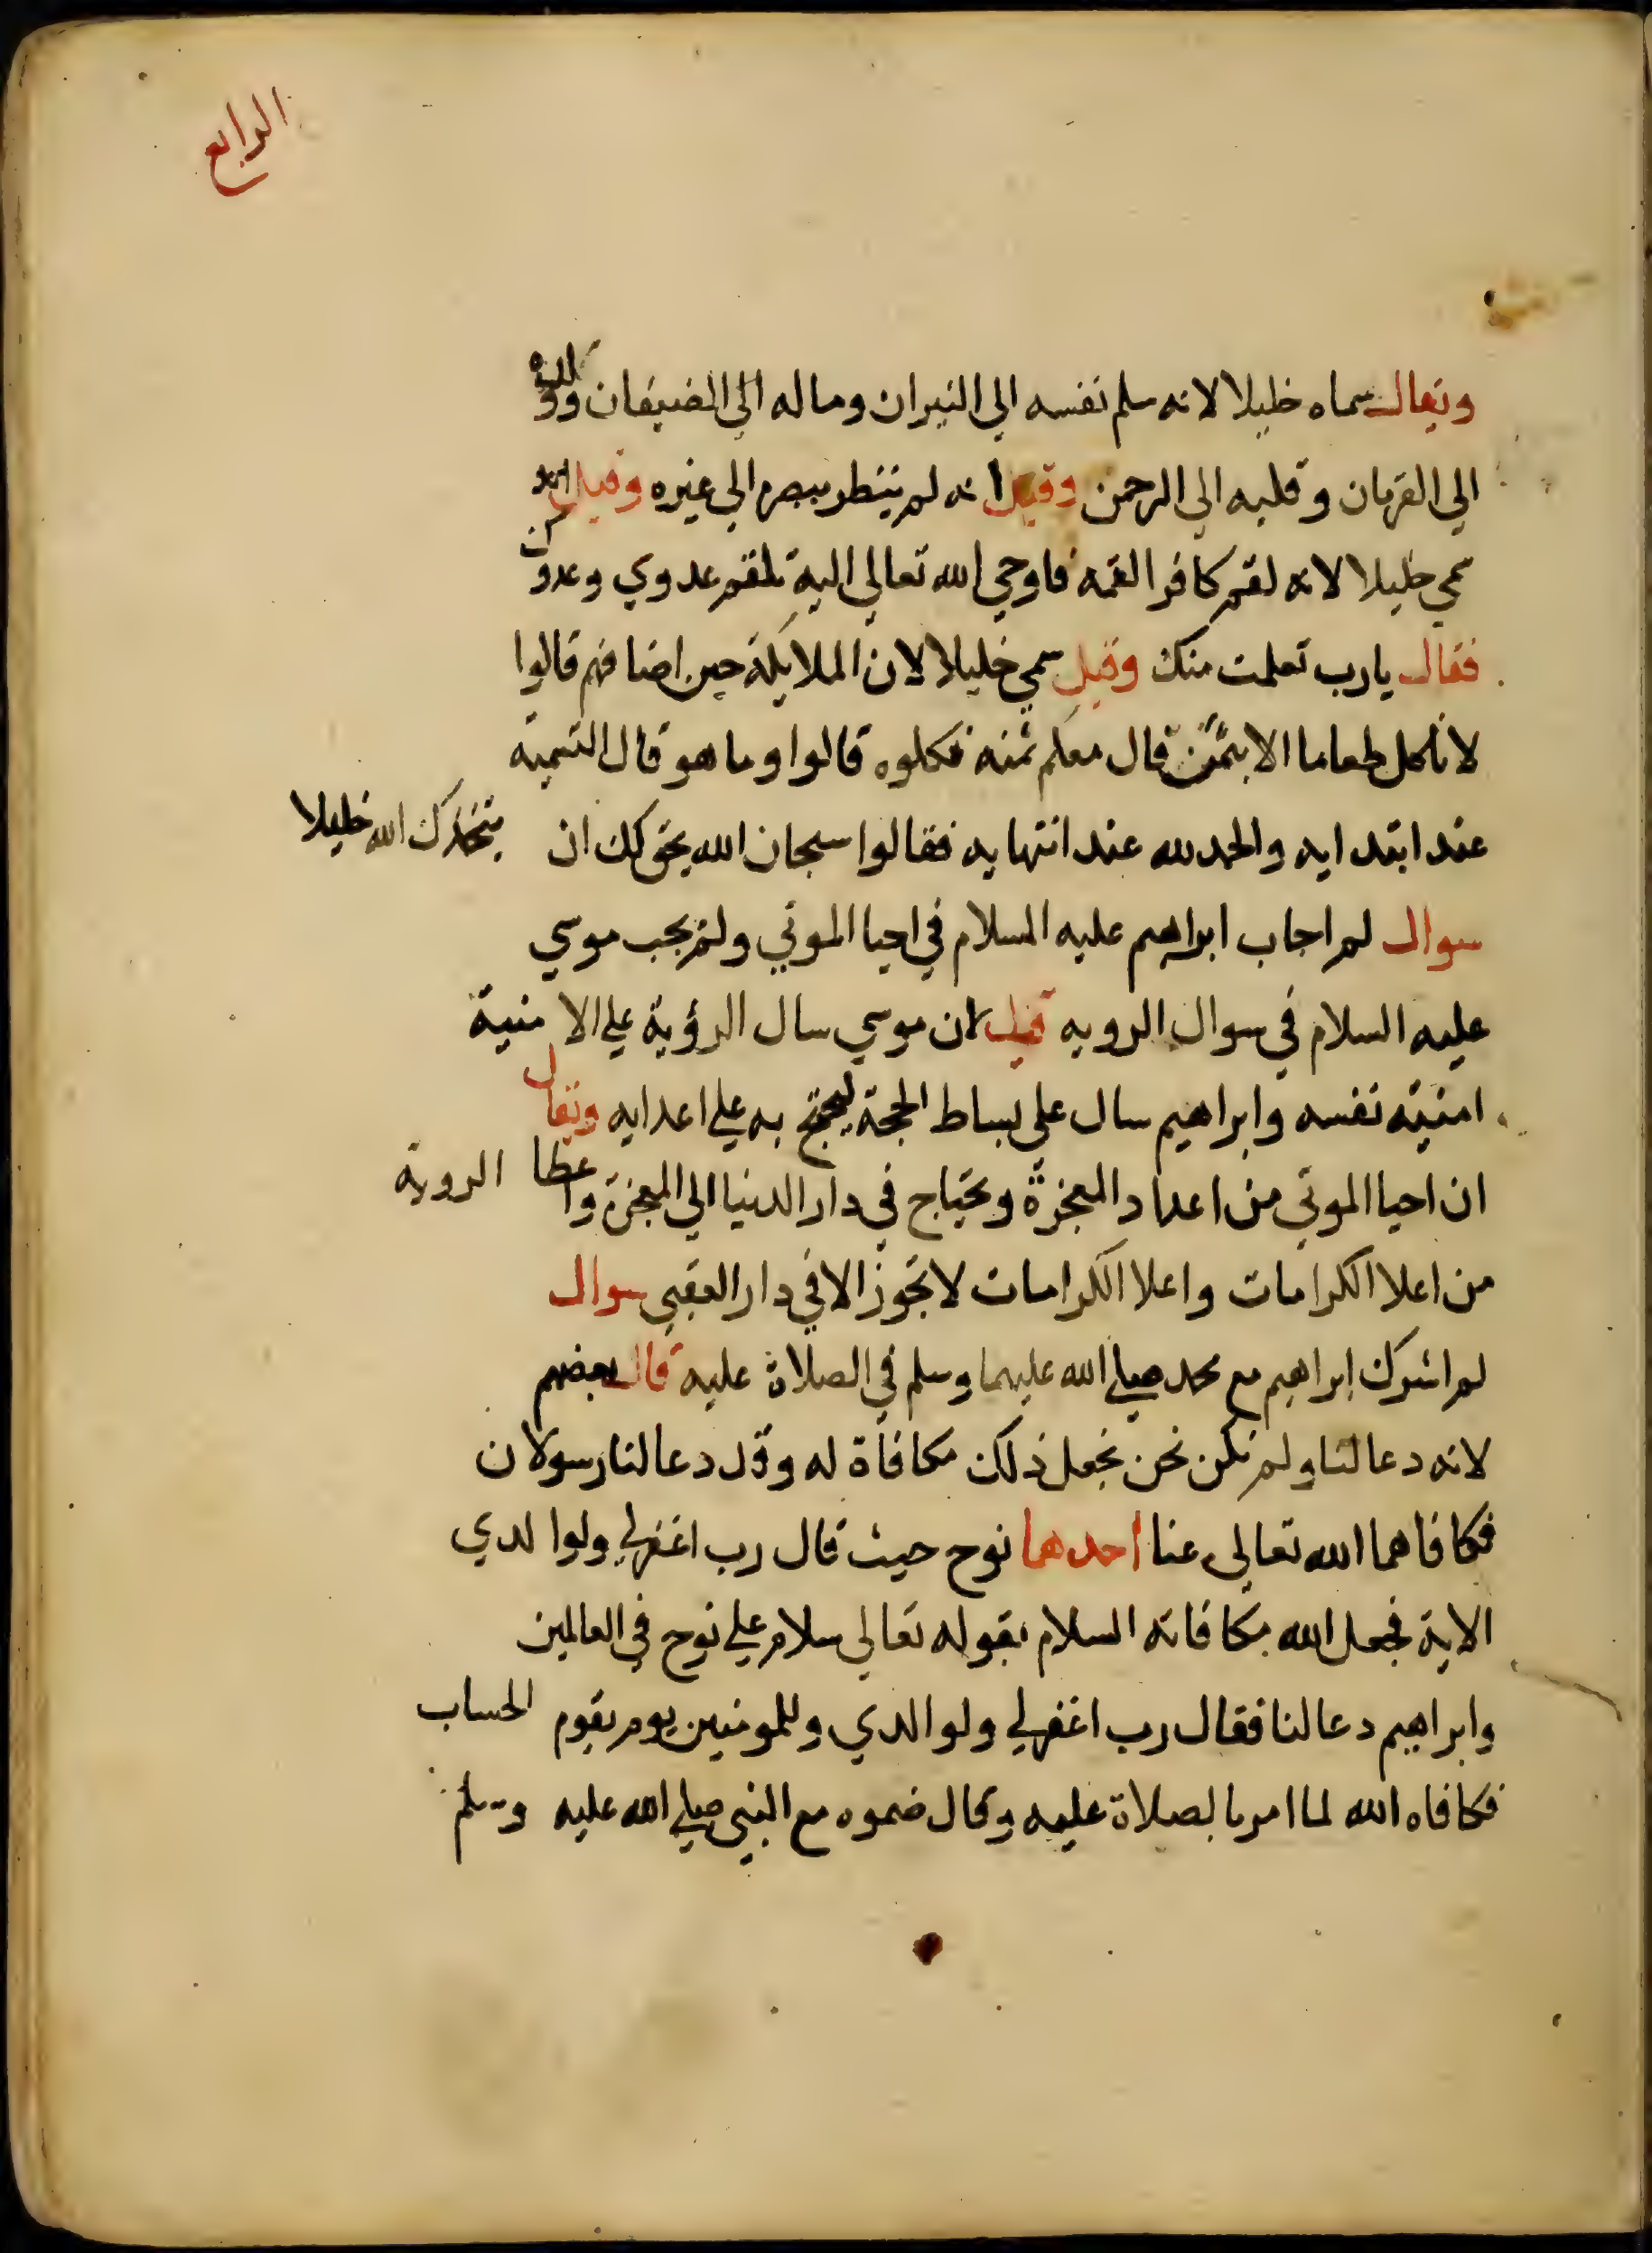 الرابع
ويقال سماه خليلا لانه سلم نفسه الي النيران وماله الي الضيفان وولده
الي القربان وقلبه الي الرحمن وقيل انه لم ينظر ببصره الي غيره وقيل انه
سمي خليلا لانه لقم كافرا لقمه فاوحي الله تعالي اليه تلقم عدوي وعدوك
فقال يارب تعلمت منك وقيل سمي خليلا لان الملايكة حين اضافهم قالوا
لا ناكل طعاما الا بثمن قال معكم ثمنه فكلوه قالوا وما هو قال التسمية
عند ابتدايه والحمد لله عند انتهايه فقالوا سبحان الله يحق لك ان يتخذك الله خليلا
سوال لم اجاب ابراهيم عليه السلام في احيا الموتي ولم يجب موسي
عليه السلام في سوال الرويه قيل لان موسي سال الرؤية علي الامنية
امنية نفسه وابراهيم سال علي بساط الحجة ليحتج به علي اعدايه ويقال
ان احيا الموتي من اعداد المعجزة ويحتاج في دار الدنيا الي المعجزة واعطا الروية
من اعلا الكرامات واعلا الكرامات لا تجوز الا في دار العقبي سوال
لم اشرك ابراهيم مع محمد صلي الله عليهما وسلم في الصلاة عليه قال بعضهم
لانه دعا لنا ولم نكن نحن نجعل ذلك مكافاة له وقد دعا لنا رسولان
فكافاهما الله تعالي عنا احدهما نوح حيث قال رب اغفر لي ولوالدي
الاية فجعل الله مكافاته السلام بقوله تعالي سلام علي نوح في العالمين
وابراهيم دعا لنا فقال رب اغفر لي ولوالدي وللمومنين يوم يقوم الحساب
فكافاه الله لما امر بالصلاة عليه وقال ضموه مع النبي صلي الله عليه وسلم